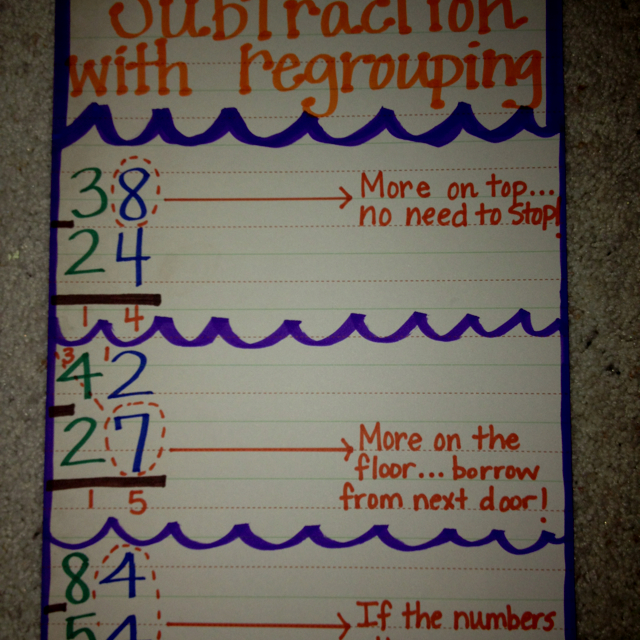 Subtraction
with regrouping
38
More on top...
no need to Stop!
- 24
14
3 1
42
- 27
More on the
floor... borrow
from next door!
15
84
If the numbers
- 54